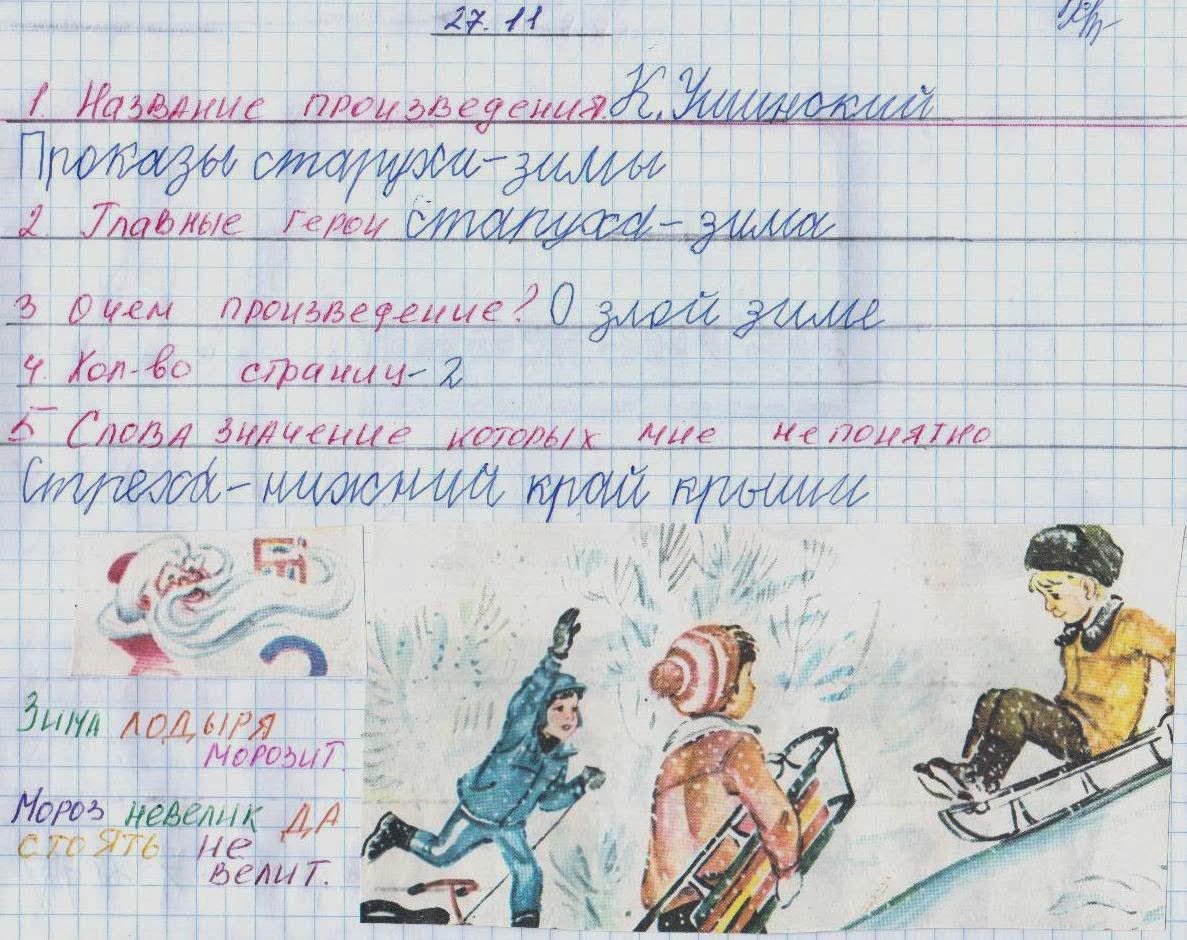 27.11
1. Название произведения. К. Ушинский
Проказы старухи-зимы
2. Главные герои старуха-зима
3 О чем произведение? О злой зиме
4. Кол-во страниц-2
5 Слова значение которых мне непонятно
Стреха-нижний край крыши
Зима лодыря
морозит.
Мороз невелик да
стоять не
велит.